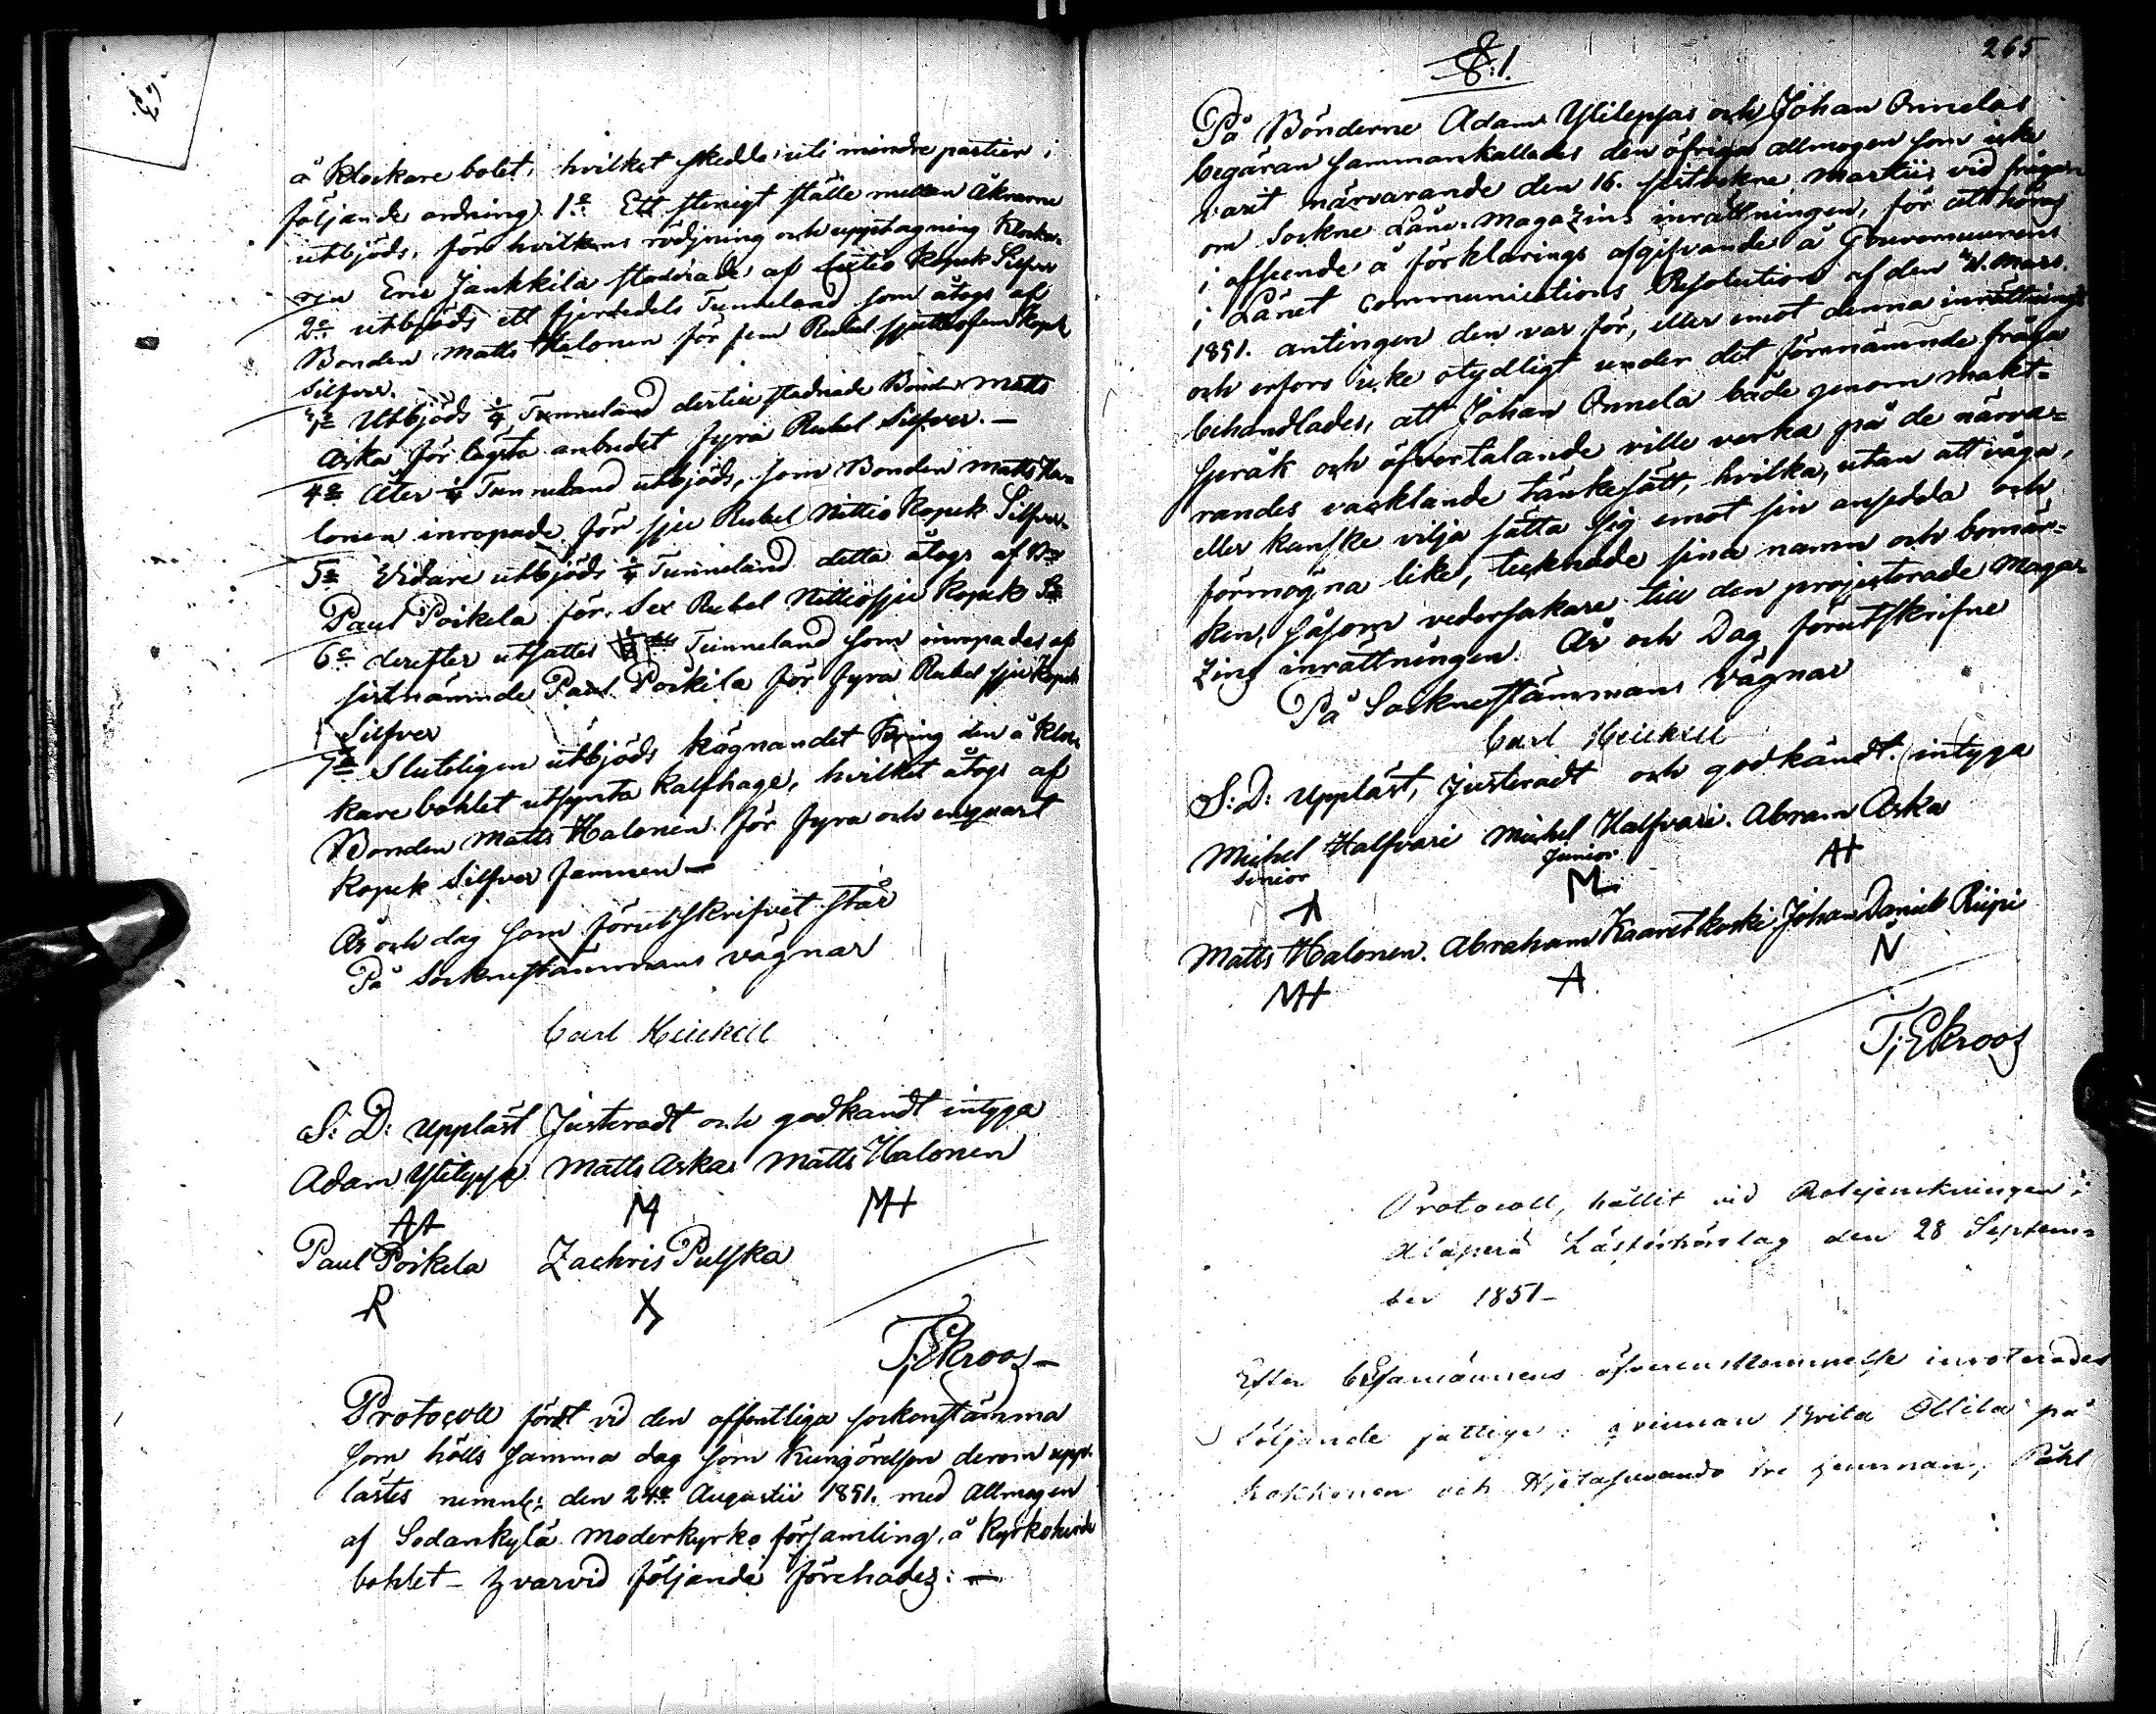 å klockare bolet, hvilket skedde uti mindre partier i
följande ordning). 1o Ett stenigt ställe mellan åkrarne
utbjöds, för hvilkens rödjning och upptagning Klocka=
ren Eric Jankkila stadnade af Kopek Silfver
2o utbjöds ett fjerdedels Tunneland som åtogs af
Bonden Matts Halonen för fem Rubel sjuttiofem Kopek
Silfver.
3o Utbjöds ¼ Tunneland dertill stadnade Bonden Matts
Aska för lägsta anbudet fyra Rubel Silfver. —
4o Åter ¼ Tunneland utbjöds, som Bonden Matts Ha=
lonen inropade för sju Rubel Nittio Kopek Silfver.
5o Vidare utbjöds ¼ Tunneland detta åtogs af
Paul Poikela för Sex Rubel Nittiosju Kopek
6o derefter utsattes Tunneland som inropades af
sistnämnde Paul Poikila för fyra Rubel sju Kopek
Silfver
7o Sluteligen utbjöds hägnandet kring den å Kloc
kare bohlet utsynta Kalfhage, hvilket åtogs af
Bonden Matts Halonen för fyra och en quart
Kopek Silfver famnen —
År och dag som förutskrifvet står
På Sockenstämmans vägnar
Carl Heickell
S: D: Uppläst Justeradt och godkändt intyga
Adam Ylileppa Matts Aska Matts Halonen
AA M MH
Paul Poikela Zachris Pulska
P X
T: Ekroos —
Protocoll fördt vid den offentliga sockenstämma
som hölls samma dag som Kungörelsen derom upp=
lästes neml: den 24de Augustii 1851. med Allmogen
af Sodankylä Moderkyrko församling, å Kyrkoherde
bohlet — hvarvid följande förehades: —
265
§:1.
På Bönderne Adam Ylileppas och Johan Onnelas
begäran sammankallades den öfriga allmogen som icke
varit närvarande den 16. sistvekne Martii vid frågan
om Sockne Låne-Magazins inrättningen, för att höras
i afseende å förklarings afgifvande å Gouverneurens
i Länet Communications Resolution af den Mars
1851. antingen den var för, eller emot denna inrättning
och erfors icke otydligt under det förenämnde fråga
behandlades, att Johan Onnela både genom makt=
språk och öfvertalande ville verka på de närva=
randes vacklande tänkesätt, hvilka, utan att våga,
eller kanske vilja sätta sig emot sin ansedda och
förmögna like, tecknade sina namn och bomär=
ken, såsom vedersakare till den projecterade Maga=
zins inrättningen. År och Dag förutskrifne
På Sockne stämmans Vägnar
Carl Heickell
S: D: Uppläst, Justeradt och godkändt intyga
Michel Halfvari Michel Halfvari. Abram Aska
Senior Junior AH
A M
Matts Halonen. Abraham Kaaretkoski Johan Daniel Riipi
MH A N
T: Ekroos
Protocoll, hållit vid Rotejemkningen i
Läsförhörslag den 28 Septem=
ber 1851 —
Efter öfverenskommelse inroterades
följande fattige: qvinnan Brita Ollila på
Kokkonen och tre Påhl